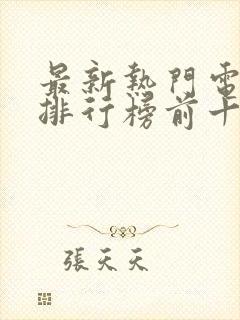 最新熱門電
排行榜前十
張天天